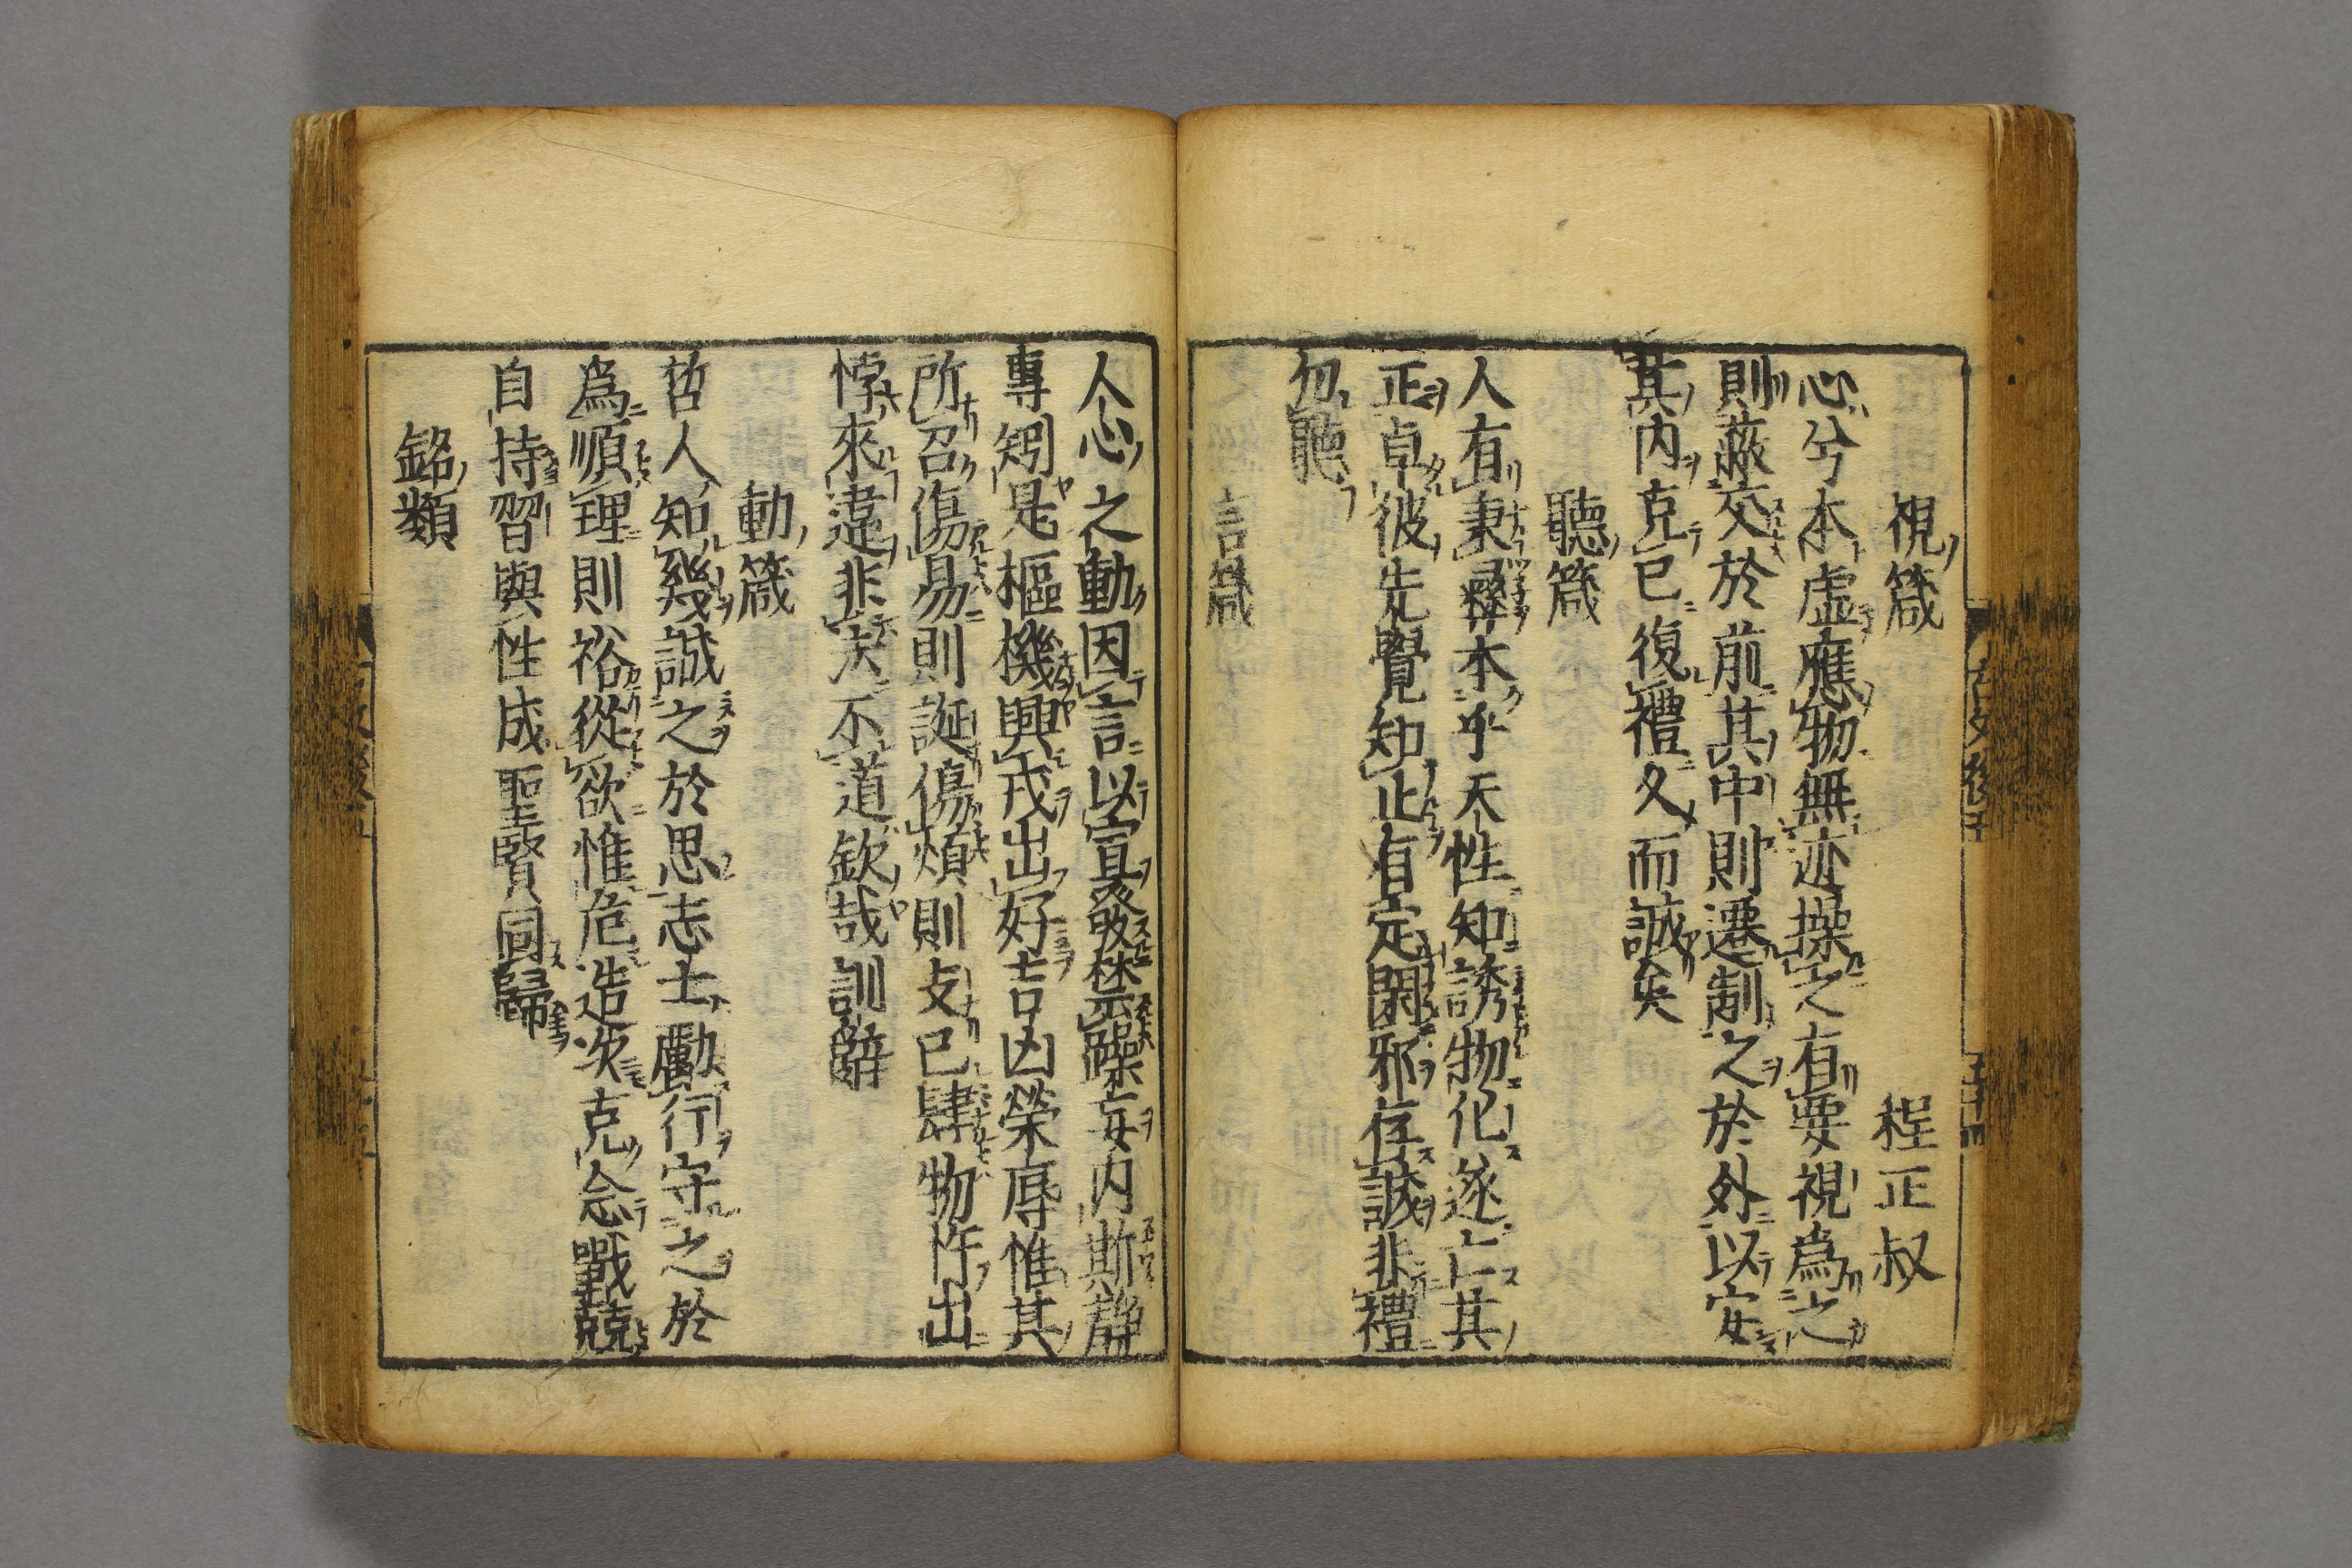 視箴 程正叔
心兮本虚應物無迹操之有要視爲之
則蔽交於前其中則遷制之於外以安
其内克已復禮久而誠矣
聽箴
人有秉彝本乎天性知誘物化遂亡其
正卓彼先覺知止有定閑邪存誠非禮
勿聽
言箴
人心之動因言以宣發禁躁妄内斯靜
專矧是樞機興戎出好吉凶榮辱惟其
所召傷易則誕傷煩則支已肆物忤出
悖來違非法不道欽哉訓辭
動箴
哲人知幾誠之於思志士勵行守之於
爲順理則裕從欲惟危造次克念戰兢
自持習與性成聖賢同歸
銘類